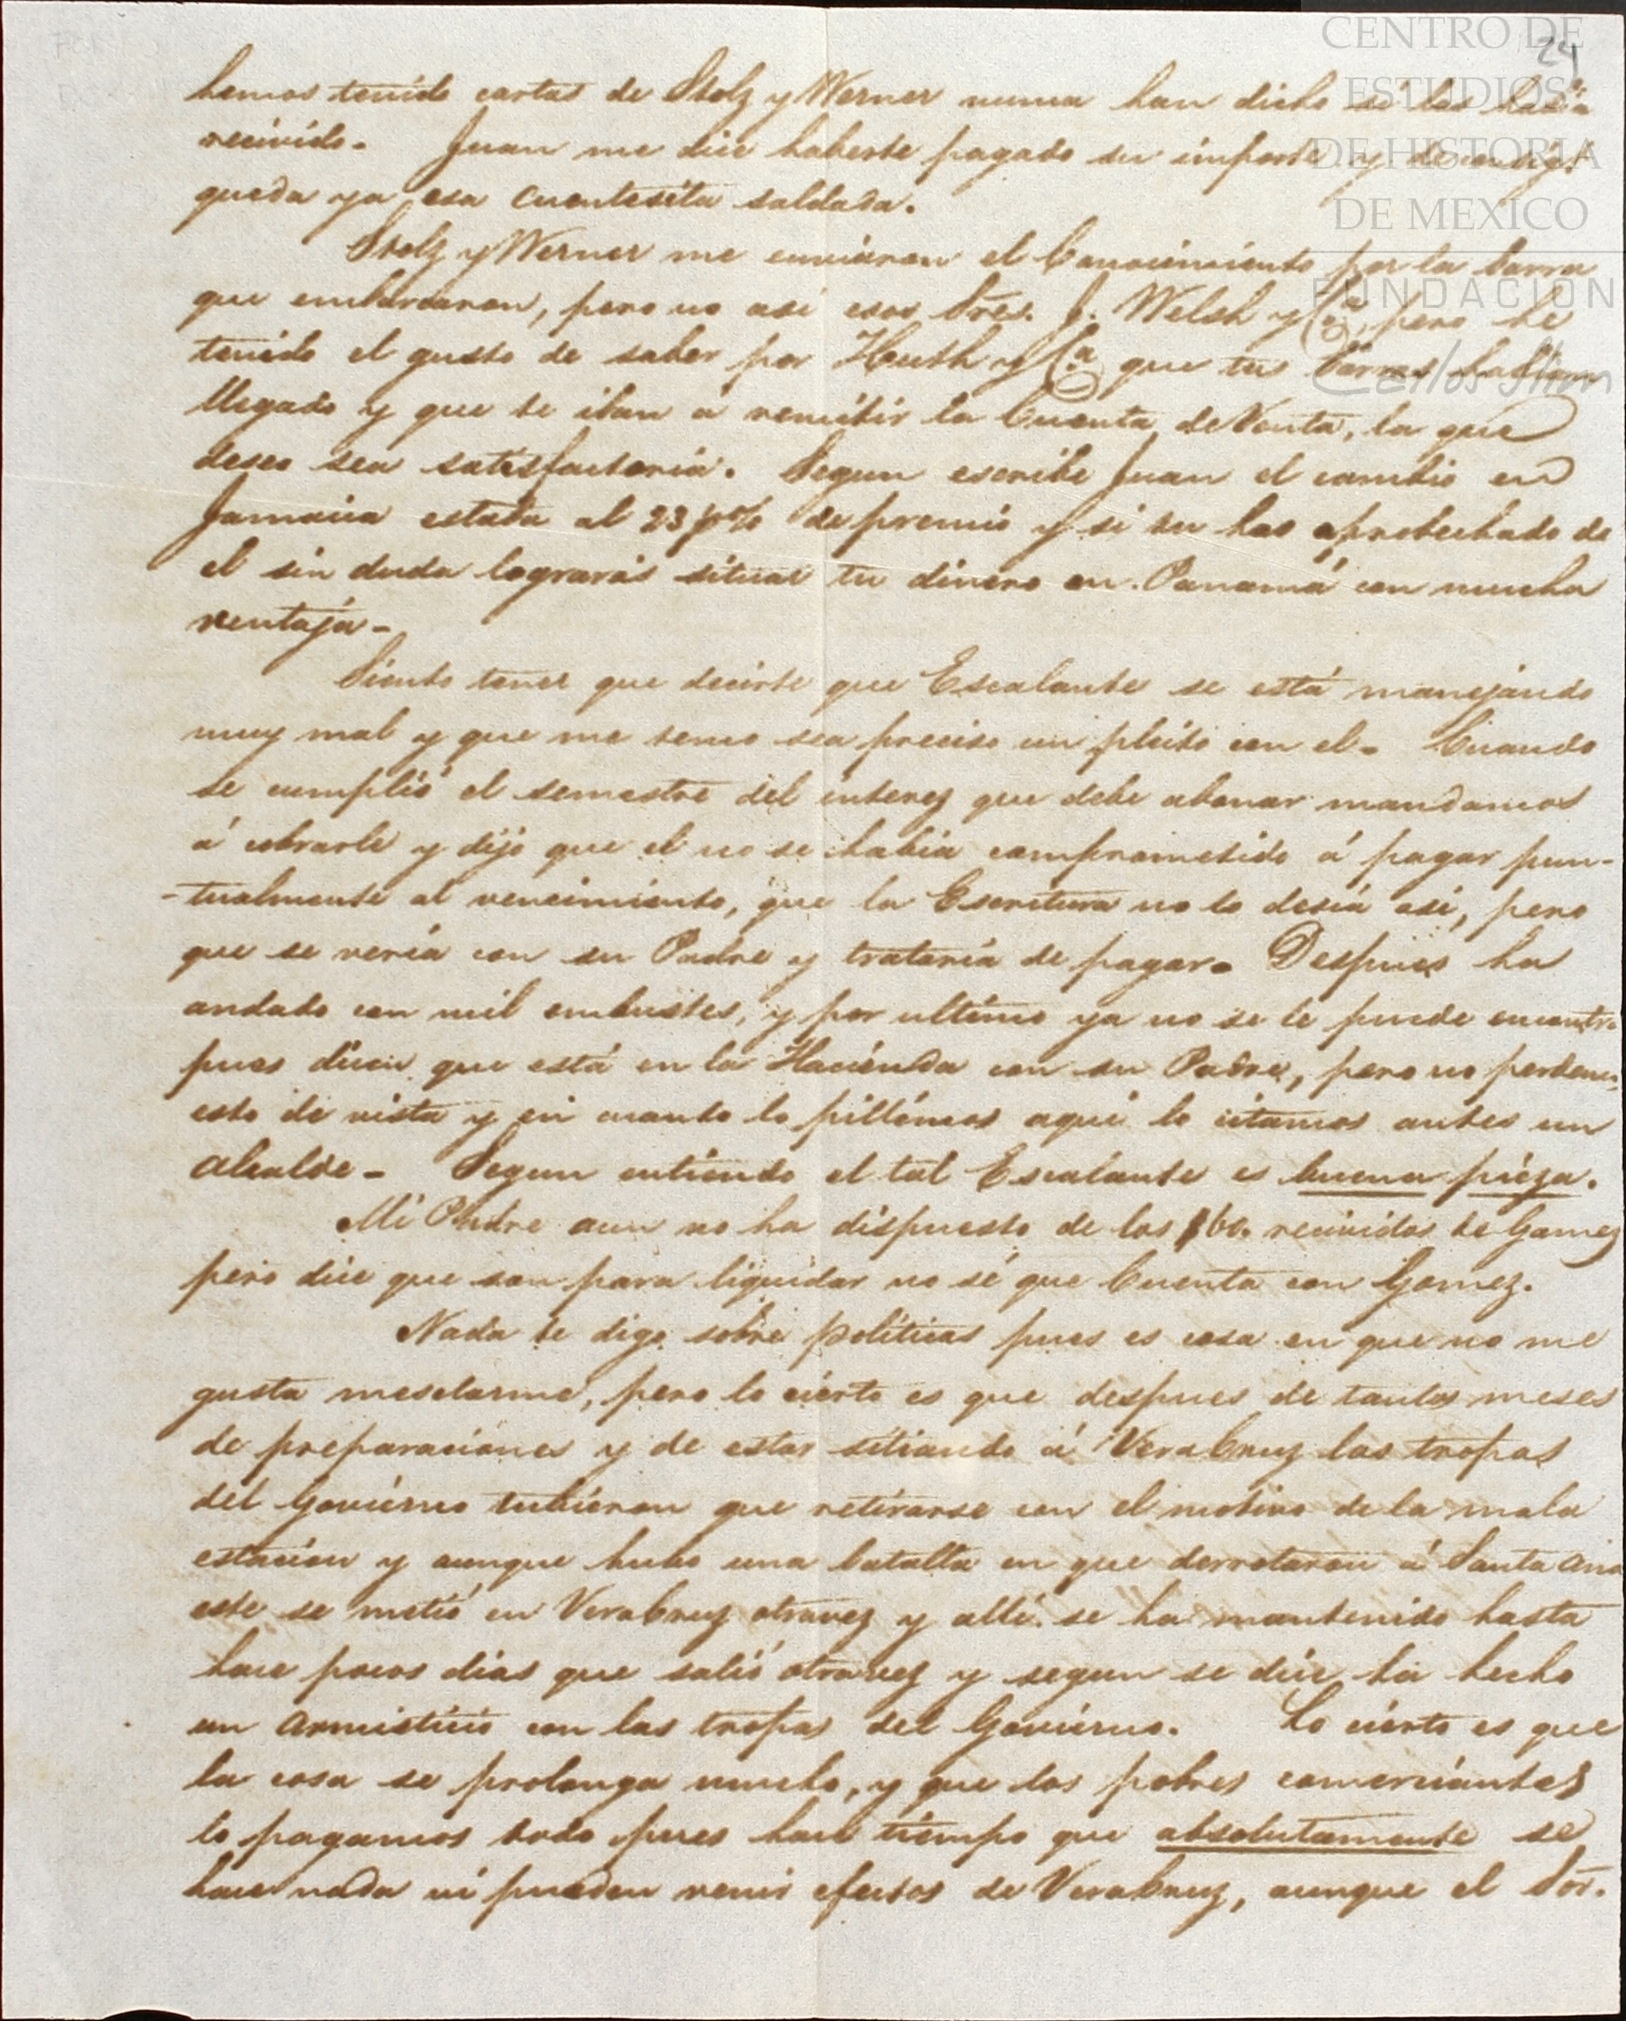 24
CENTRO DE
ESTUDIOS
DE HISTORIA
DE MEXICO
FUNDACION
Carlos Slim
hemos tenido cartas de Stolz y Werner nunca han dicho si las había
recivido. Juan me dice haberte pagado su importe y de consig.te
queda ya esa cuentesita saldada.
Stolz y Werner me enviaron el Conocimiento por la barra
que embarcaron, pero no asi esos Sres. J. Welsh y Ca., pero he
tenido el gusto de saber por Huth y Ca. que tus barras habían
llegado y que te iban á remitir la Cuenta de Venta, la que
deseo sea satisfactoria. Segun escribe Juan el cambio en
Jamaica estaba al 23 p% de premio y si tu has aprobechado de
el sin duda lograrás situar tu dinero en Panamá con mucha
ventája.
Siento tener que decirte que Escalante se está manejándo
muy mal y que me temo sea preciso un pleito con el. Cuando
se cumplió el semestre del interez que debe abonar mandamos
á cobrarle y dijo que el no se habia comprometido á pagar pun-
-tualmente al vencimiento, que la Escritura no lo desía asi, pero
que se vería con su Padre y trataría de pagar. Despues ha
andado con mil embustes, y por ultimo ya no se le puede encontrar
pues dicen que está en la Haciénda con su Padre, pero no perdemos
esto de vista y en cuanto lo pillémos aqui lo citamos antes un
alcalde. Segun entiendo el tal Escalante es buena pieza.
Mi Padre aun no ha dispuesto de los recividos de Gomez
pero dice que son para liquidar no sé que Cuenta con Gomez.
Nada te digo sobre politicas pues es cosa en que no me
gusta mesclarme, pero lo cierto es que despues de tantos meses
de preparaciones y de estar sitiando á VeraCruz las tropas
del Govierno tubieron que retirarse con el motivo de la mala
estacion y aunque hubo una batalla en que derrotaron á Santa Ana
este se metió en VeraCruz otravez y alli se ha mantenido hasta
hace pocos dias que salió otravez y segun se dice ha hecho
un armisticio con las tropas del Govierno. Lo cierto es que
la cosa se prolonga mucho, y que los pobres comerciantes
lo pagamos todo pues hace tiempo que absolutamente se
hace nada ni pueden venir efectos de VeraCruz, aunque el Sor.